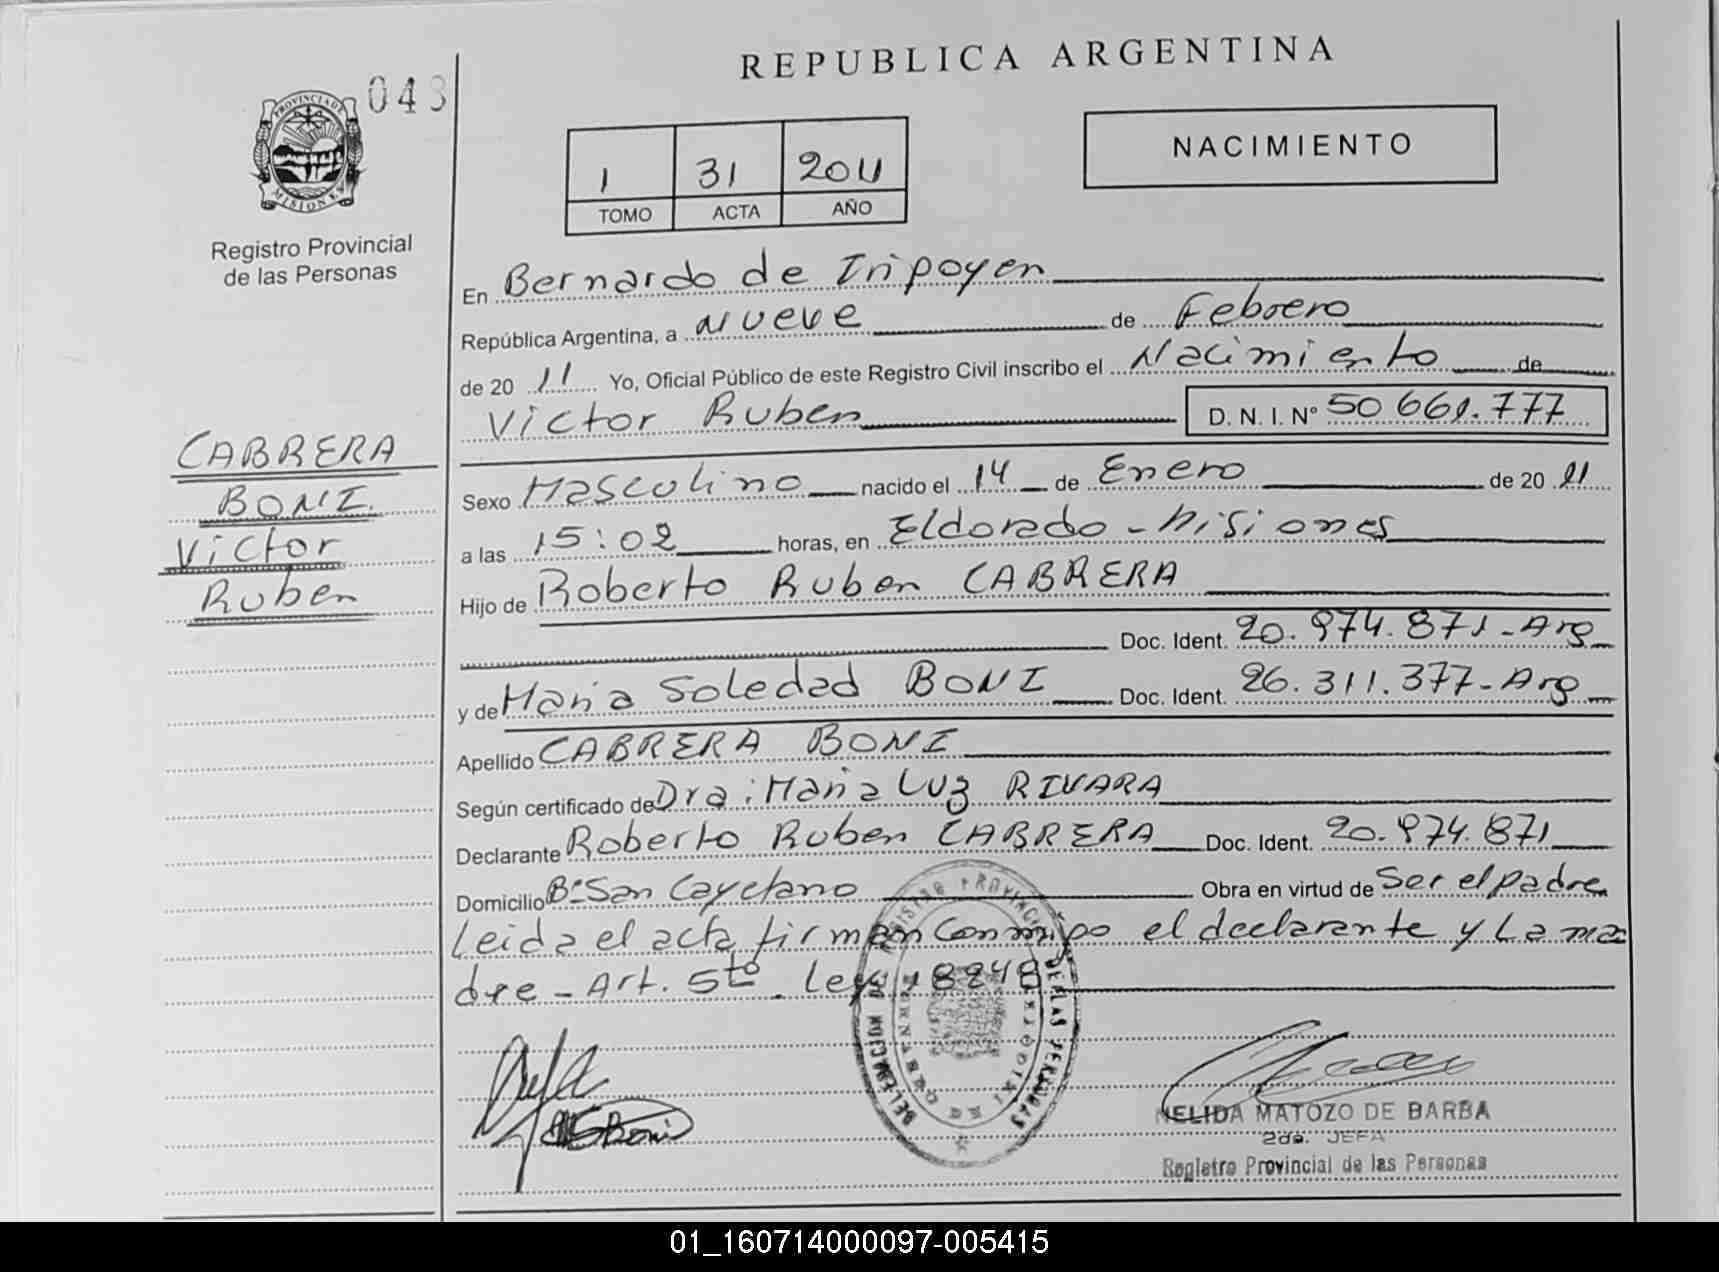 REPUBLICA ARGENTINA
043
PROVINCIA DE MISIONES
Registro Provincial
de las Personas
1 31 2011
TOMO ACTA AÑO
NACIMIENTO
En Bernardo de Iripoyen
República Argentina, a nueve de Febrero
de 20 11 Yo, Oficial Público de este Registro Civil inscribo el Nacimiento de
Victor Ruben D. N. I. N° 50.661.777
CABRERA
BONI
Victor
Ruben
Sexo Masculino nacido el 14 de Enero de 20 11
a las 15:02 horas, en Eldorado - Misiones
Hijo de Roberto Ruben CABRERA
Doc. Ident. 20.974.871-Arg
y de Maria Soledad BONI Doc. Ident. 26.311.377-Arg
Apellido CABRERA BONI
Según certificado de Dra: Maria Luz RIVARA
Declarante Roberto Ruben CABRERA Doc. Ident. 20.974.871
Domicilio B° San Cayetano Obra en virtud de Ser el padre
Leida el acta firman Conmigo el declarante y La ma
dre - Art. 5to - Ley 18248
DELEGACION DE REGISTRO PROVINCIAL DE LAS PERSONAS
NELIDA MATOZO DE BARBA
2da. JEFA
Registro Provincial de las Personas
01_160714000097-005415